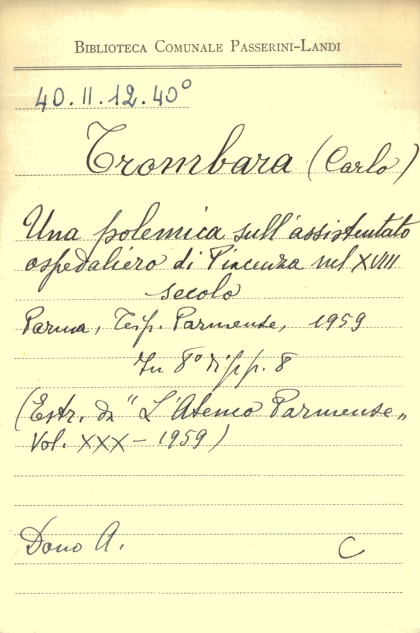 BIBLIOTECA COMUNALE PASSERINI-LANDI
40.II.12.40°
Trombara (Carlo)
Una polemica sull'assistentato
ospedaliero di Piacenza nel XVIII
secolo
Parma, Tip. Parmense, 1959
In 8° di pp. 8
(Estr. da "L'Ateneo Parmense„
Vol. XXX - 1959)
Dono A.
C